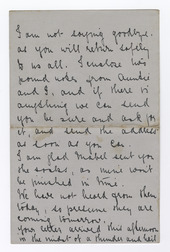 I am not saying goodbye.
as you will return safely
to us all. I enclose two
pound notes from Auntie
and I, and if there is
anything we can send
you be sure and ask for
it, and send the address
as soon as you can.
I am glad Mabel sent you
the socks, as mine won't
be finished in time.
We have not heard from them
today, so presume they are
coming tomorrow.
Your letter arrived this afternoon
in the midst of a thunder and hail